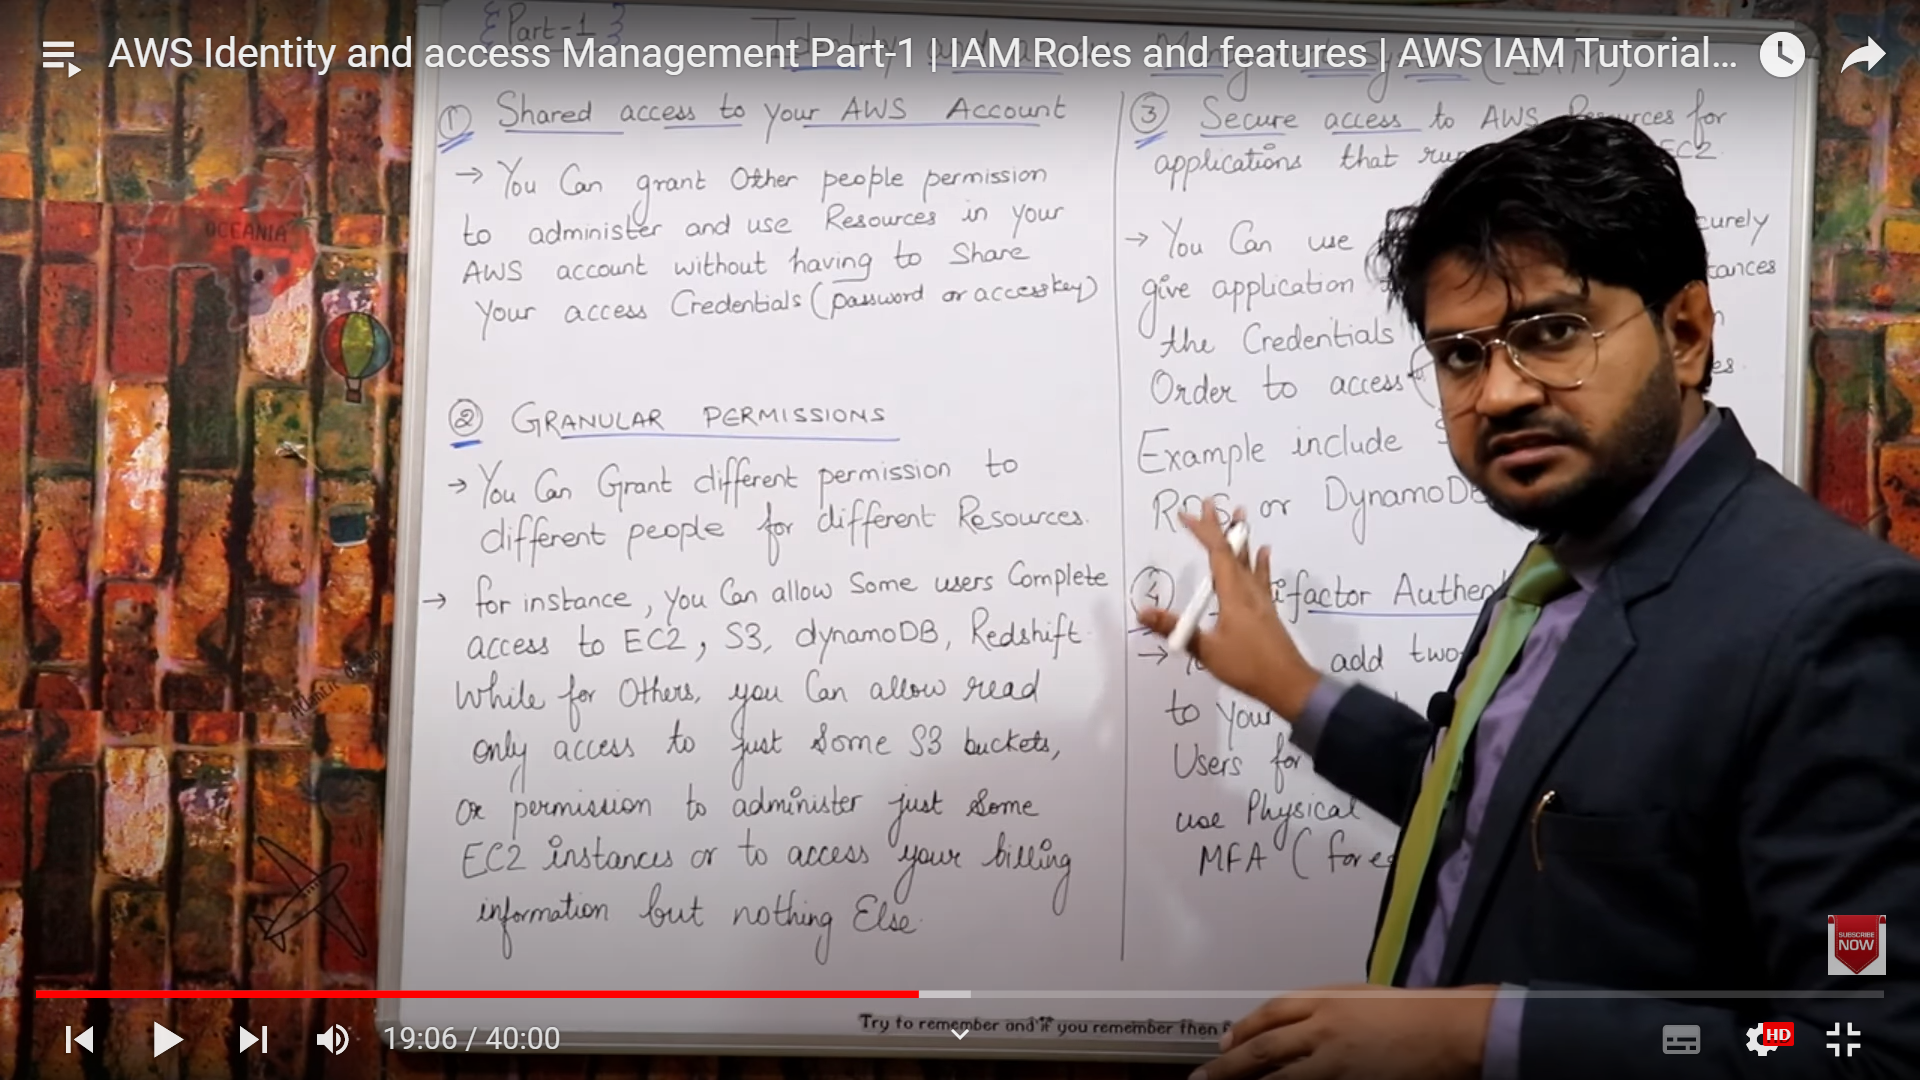 AWS Identity and access Management Part-1 | IAM Roles and features | AWS IAM Tutorial...
{Part-1}
① Shared access to your AWS Account
→ You Can grant Other people permission
to administer and use Resources in your
AWS account without having to Share
Your access Credentials (password or accesskey)
② GRANULAR PERMISSIONS
→ You Can Grant different permission to
different people for different Resources.
→ for instance, you Can allow Some users Complete
access to EC2, S3, dynamoDB, Redshift
While for Others, you Can allow read
only access to just Some S3 buckets,
or permission to administer just Some
EC2 instances or to access your billing
information but nothing Else.
③ Secure access to AWS Resources for
applications that run EC2
→ You Can use
give application
the Credentials
Order to access
Example include
RDS or DynamoDB
④
→ add two
to Your
Users for
use Physical
MFA (for
OCEANIA
Atlantic Ocean
SUBSCRIBE
NOW
Try to remember and if you remember then
19:06 / 40:00
HD